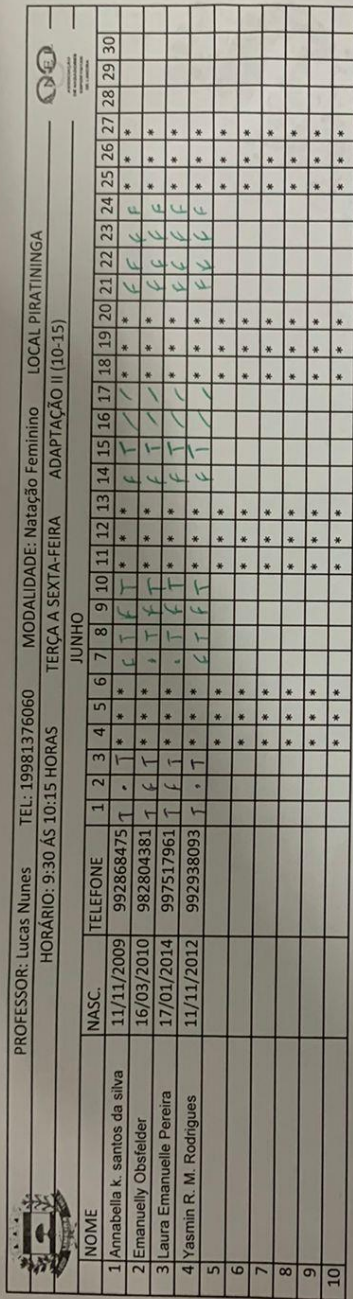 PROFESSOR: Lucas Nunes TEL: 19981376060 MODALIDADE: Natação Feminino LOCAL PIRATININGA
HORÁRIO: 9:30 ÁS 10:15 HORAS TERÇA A SEXTA-FEIRA ADAPTAÇÃO II (10-15)
JUNHO
NOME NASC. TELEFONE 1 2 3 4 5 6 7 8 9 10 11 12 13 14 15 16 17 18 19 20 21 22 23 24 25 26 27 28 29 30
1 Annabella k. santos da silva 11/11/2009 992868475 T . T * * * F T F T * * * F T / / * * * F F F F * * *
2 Emanuelly Obsfelder 16/03/2010 982804381 T F T * * * . T F T * * * F T / / * * * F F F F * * *
3 Laura Emanuelle Pereira 17/01/2014 997517961 T F T * * * . T F T * * * F T / / * * * F F F F * * *
4 Yasmin R. M. Rodrigues 11/11/2012 992938093 T . T * * * F T F T * * * F T / / * * * F F F F * * *
5 * * * * * * * * * * * *
6 * * * * * * * * * * * *
7 * * * * * * * * * * * *
8 * * * * * * * * * * * *
9 * * * * * * * * * * * *
10 * * * * * * * * * * * *